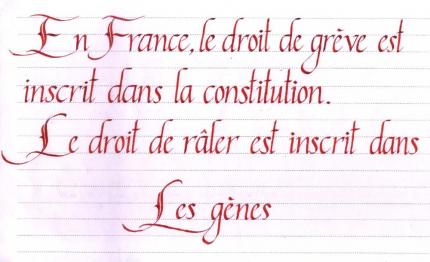 En France, le droit de grève est
inscrit dans la constitution.
Le droit de râler est inscrit dans
Les gènes